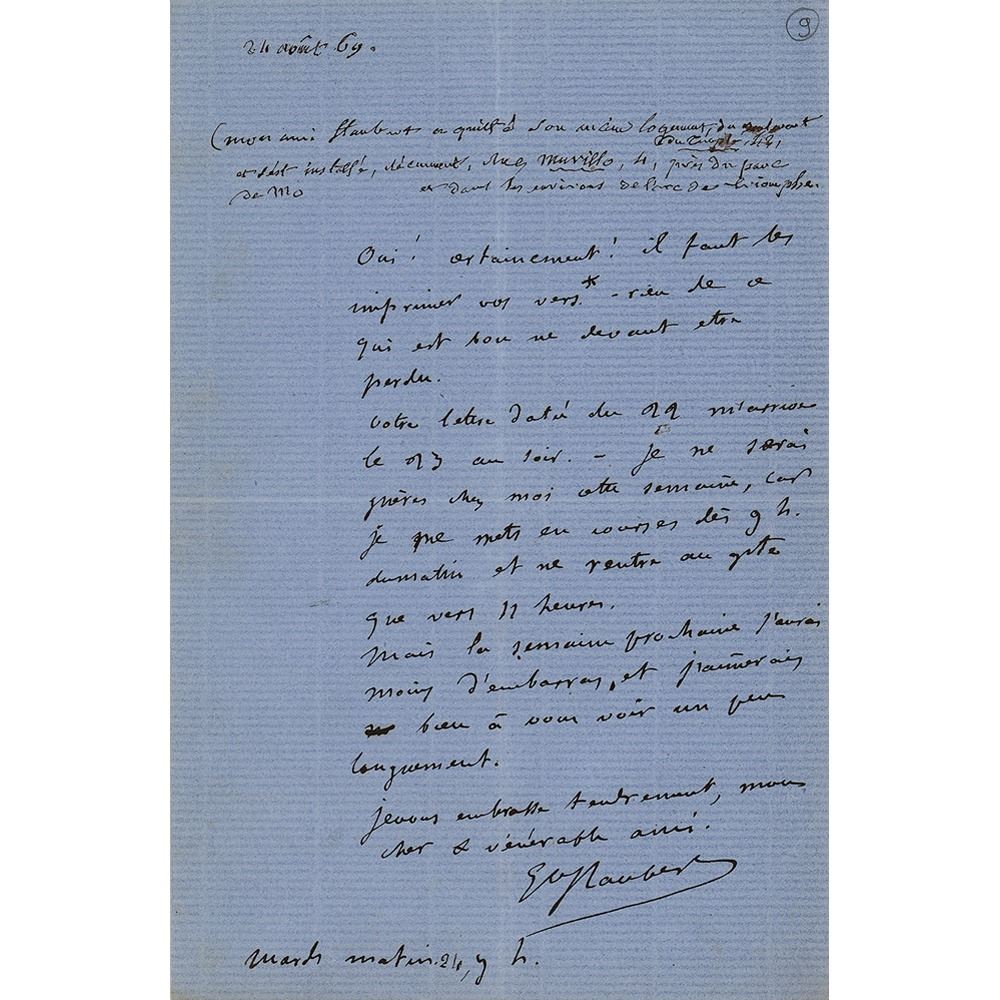 9
24 août 69.
(mon ami Flaubert a quitté son ancien logement, du
du Temple, 42,
et s'est installé, décemment, rue Murillo, 4, près du parc
de Mo et dans les environs de l'arc de triomphe.
Oui! certainement! il faut les
imprimer vos vers.* - rien de ce
qui est bon ne devant etre
perdu.
votre lettre datée du 22 m'arrive
le 23 au soir. - Je ne serai
guères chez moi cette semaine, car
je me mets en courses dès 9 h.
du matin et ne rentre au gîte
que vers 11 heures.
Mais la semaine prochaine j'aurai
moins d'embarras, et j'aimerais
bien à vous voir un peu
longuement.
je vous embrasse tendrement, mon
cher & vénérable ami.
Gve Flaubert
Mardi matin 24, 9 h.